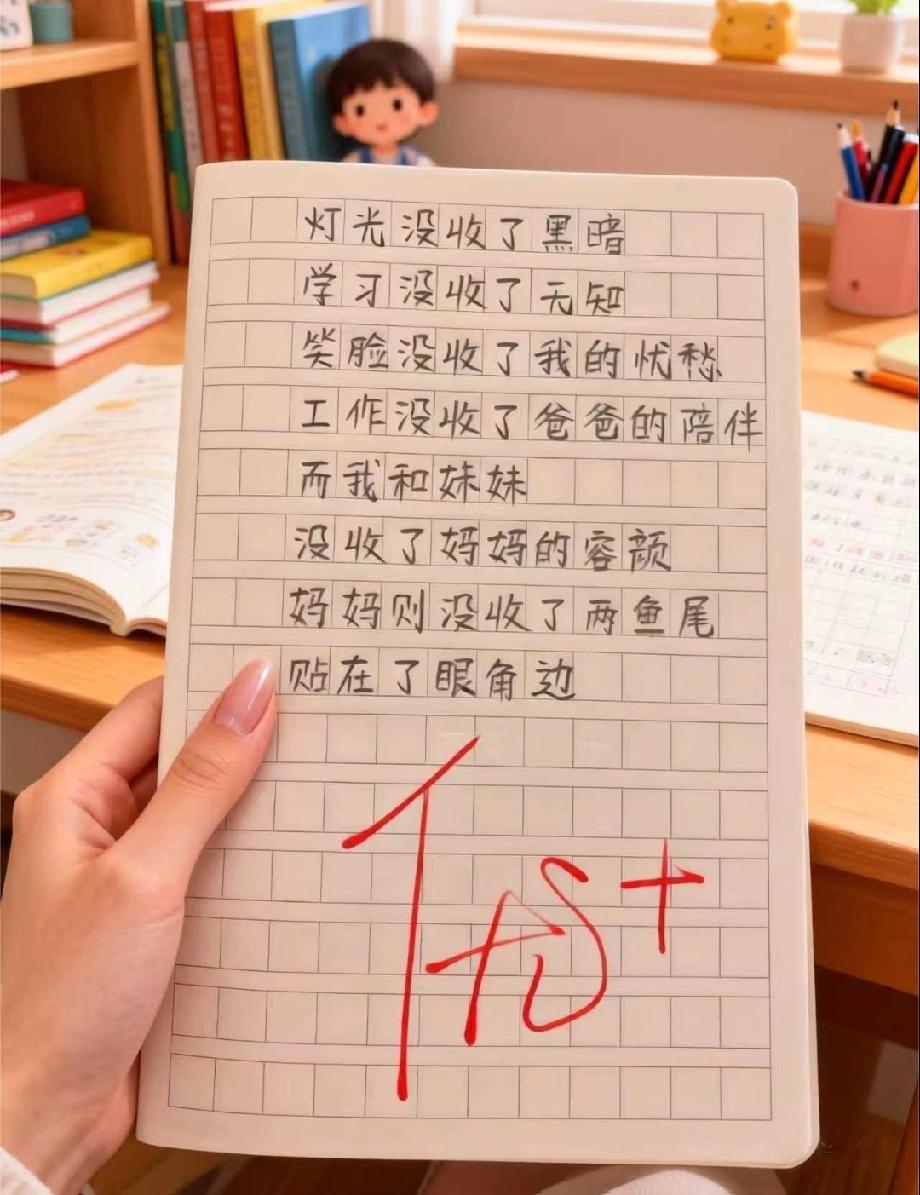 灯光没收了黑暗
学习没收了无知
笑脸没收了我的忧愁
工作没收了爸爸的陪伴
而我和妹妹
没收了妈妈的容颜
妈妈则没收了两鱼尾
贴在了眼角边